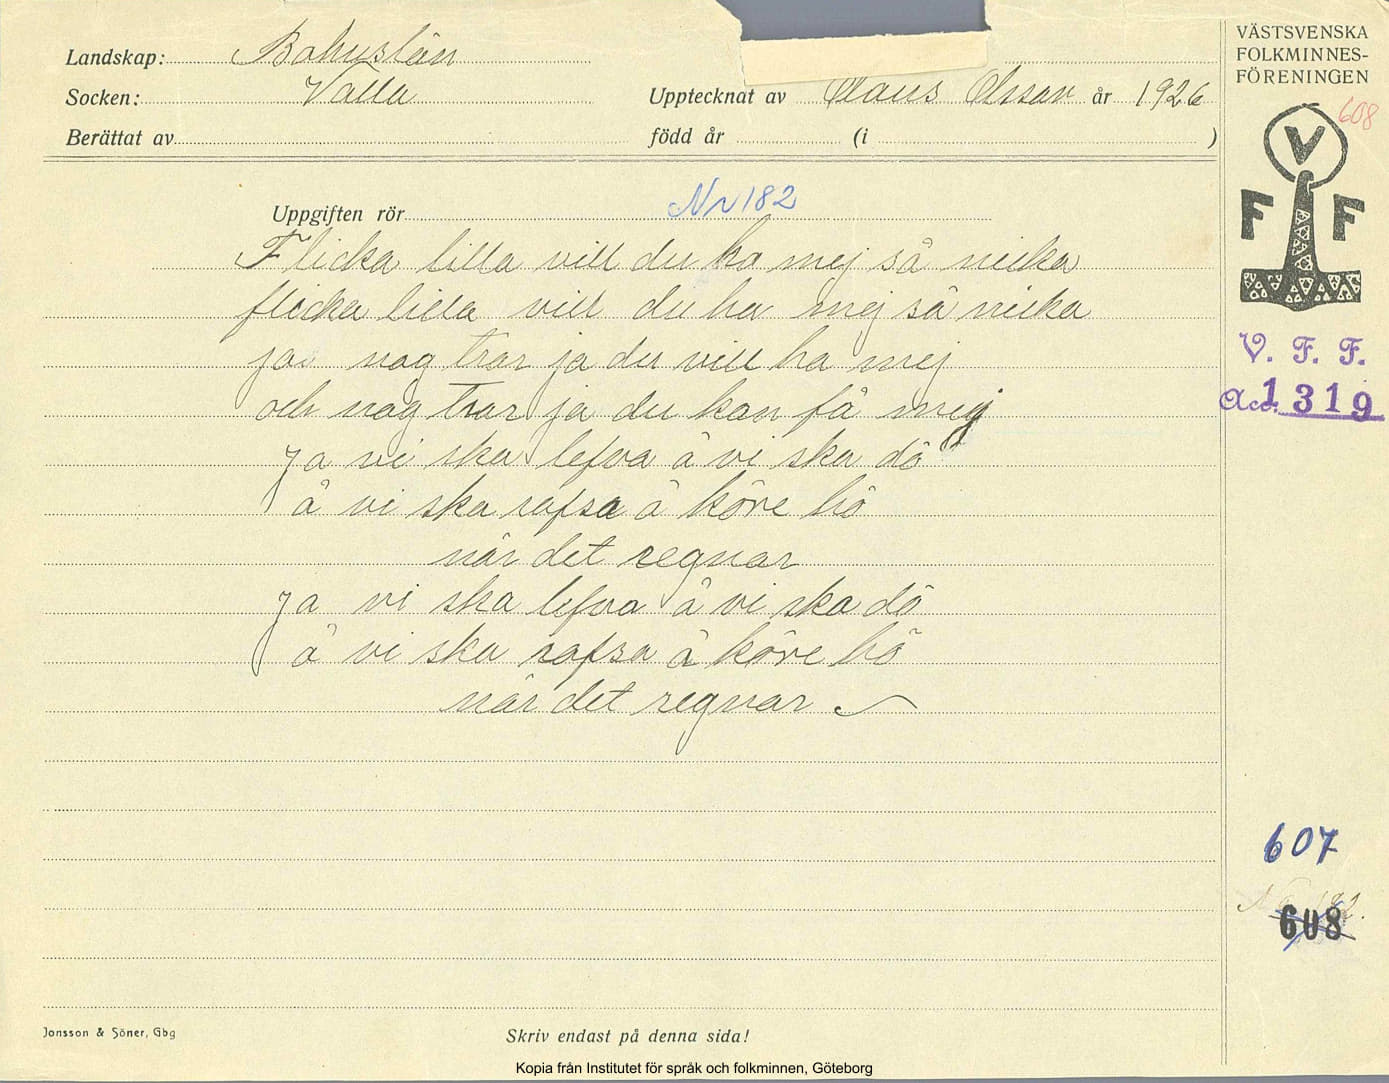 Landskap: Bohuslän
Socken: Valla
Upptecknat av Claus Olsson år 1926
Berättat av
född år (i )
VÄSTSVENSKA
FOLKMINNES-
FÖRENINGEN
608
V
F F
V. F. F.
Acc. 1319
Uppgiften rör Nr 182
Flicka lilla vill du ha mej så nicka
flicka lilla vill du ha mej så nicka
jas nog tror ja du vill ha mej
och nog tror ja du kan få mej
Ja vi ska lefva å vi ska dö
å vi ska rafsa å köre hö
när det regnar
Ja vi ska lefva å vi ska dö
å vi ska rafsa å köre hö
när det regnar
607
No 182.
608
Jonsson & Söner, Gbg
Skriv endast på denna sida!
Kopia från Institutet för språk och folkminnen, Göteborg